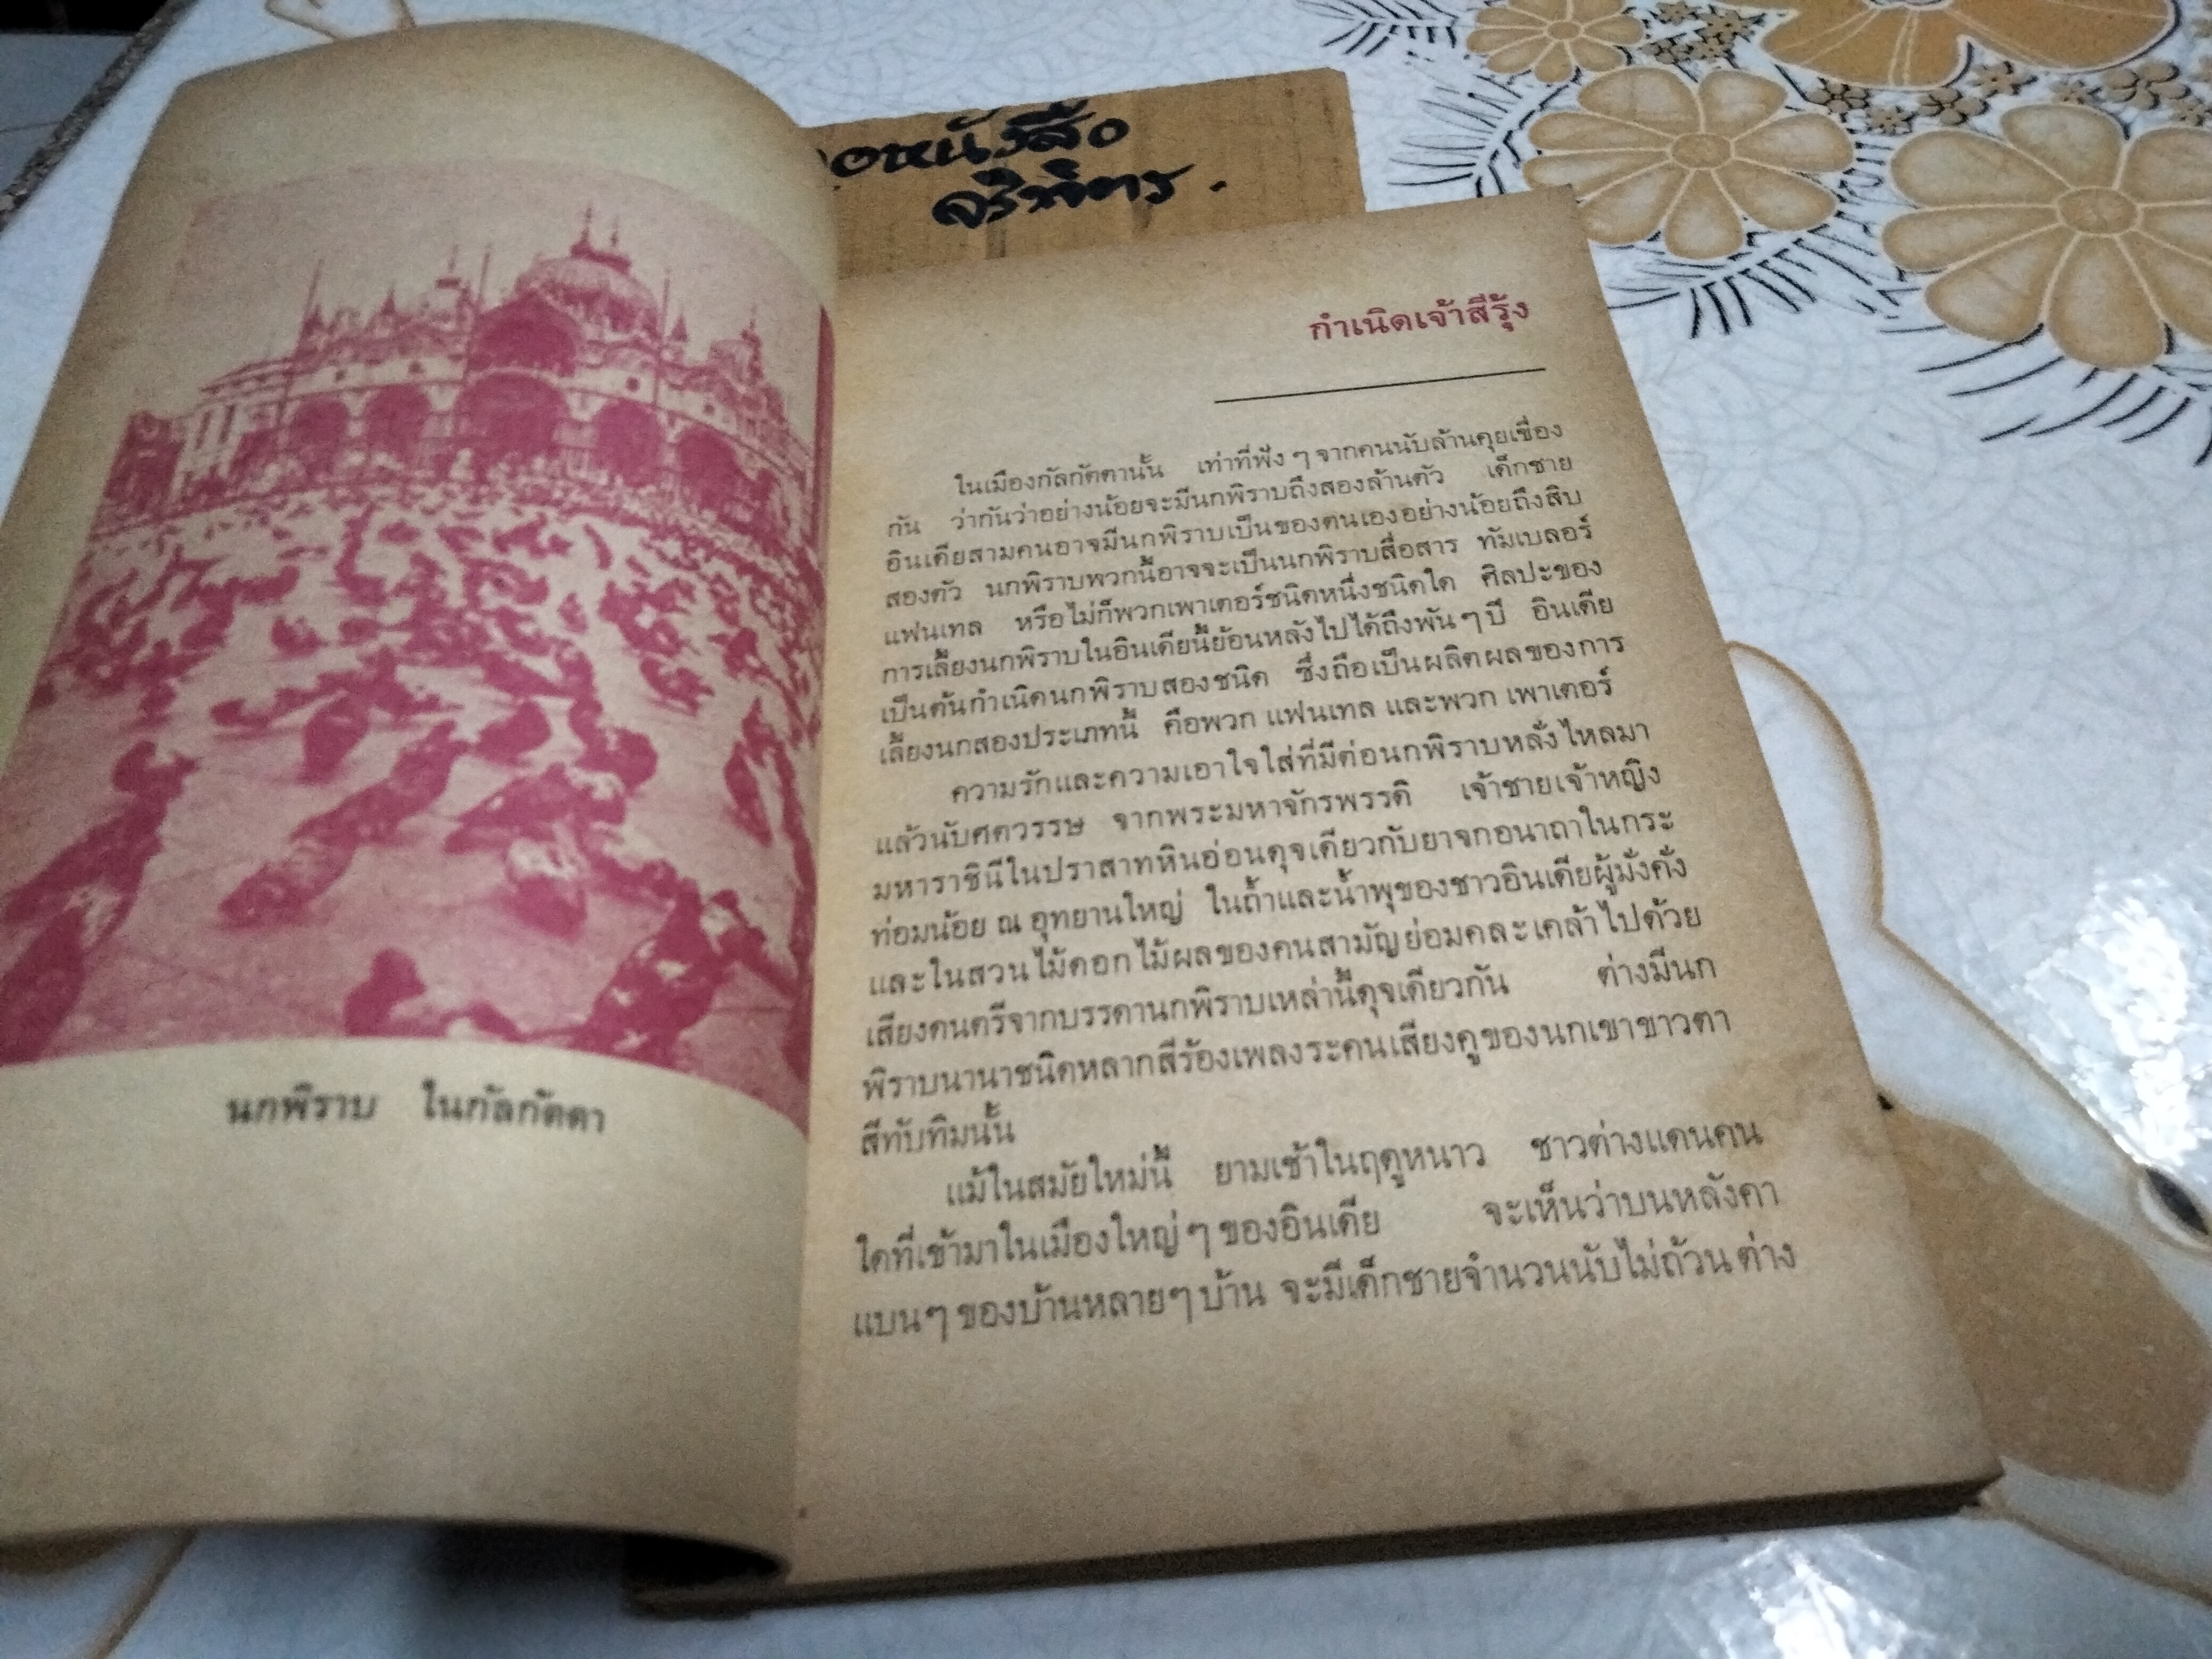 อหนังสือ
นกพิราบ ในกัลกัตตา
กำเนิดเจ้าสีรุ้ง
ในเมืองกัลกัตตานั้น เท่าที่ฟัง ๆ จากคนนับล้านคุยเขื่อง
กัน ว่ากันว่าอย่างน้อยจะมีนกพิราบถึงสองล้านตัว เด็กชาย
อินเดียสามคนอาจมีนกพิราบเป็นของตนเองอย่างน้อยถึงสิบ
สองตัว นกพิราบพวกนี้อาจจะเป็นนกพิราบสื่อสาร ทัมเบลอร์
แฟนเทล หรือไม่ก็พวกเพาเตอร์ชนิดหนึ่งชนิดใด ศิลปะของ
การเลี้ยงนกพิราบในอินเดียนี้ย้อนหลังไปได้ถึงพัน ๆ ปี อินเดีย
เป็นต้นกำเนิดนกพิราบสองชนิด ซึ่งถือเป็นผลิตผลของการ
เลี้ยงนกสองประเภทนี้ คือพวก แฟนเทล และพวก เพาเตอร์
ความรักและความเอาใจใส่ที่มีต่อนกพิราบหลั่งไหลมา
แล้วนับศตวรรษ จากพระมหาจักรพรรดิ เจ้าชายเจ้าหญิง
มหาราชินีในปราสาทหินอ่อนดุจเดียวกับยาจกอนาถาในกระ
ท่อมน้อย ณ อุทยานใหญ่ ในถ้ำและน้ำพุของชาวอินเดียผู้มั่งคั่ง
และในสวนไม้ดอกไม้ผลของคนสามัญย่อมคละเคล้าไปด้วย
เสียงดนตรีจากบรรดานกพิราบเหล่านี้ดุจเดียวกัน ต่างมีนก
พิราบนานาชนิดหลากสีร้องเพลงระคนเสียงคูของนกเขาขาวตา
สีทับทิมนั้น
แม้ในสมัยใหม่นี้ ยามเช้าในฤดูหนาว ชาวต่างแดนคน
ใดที่เข้ามาในเมืองใหญ่ ๆ ของอินเดีย จะเห็นว่าบนหลังคา
แบน ๆ ของบ้านหลายๆ บ้าน จะมีเด็กชายจำนวนนับไม่ถ้วน ต่าง